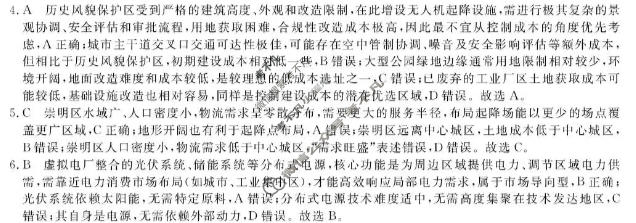 4. A 历史风貌保护区受到严格的建筑高度、外观和改造限制,在此增设无人机起降设施,需进行极其复杂的景
观协调、安全评估和审批流程,用地获取困难,合规性改造成本极高,因此最不宜从控制成本的角度优先考
虑,A正确;城市主干道交叉口交通可达性极佳,可能存在空中管制协调、噪音及安全影响评估等额外成本,
但相比于历史风貌保护区,初期建设成本相对低一些,B错误;大型公园绿地边缘通常用地限制相对较少,环
境开阔,地面改造难度和成本较低,是较理想的低成本选址之一,C错误;已废弃的工业厂区土地获取成本可
能较低,基础设施改造也相对容易,同样是控制建设成本的潜在优选区域,D错误。故选A。
5. C 崇明区水域广、人口密度小,物流需求呈零散分布,需要更大的服务半径,布局起降场能以更少的场点覆
盖更广区域,C正确;地形开阔也有利于起降点布局,A错误;崇明区远离中心城区,土地成本低于中心城区,
B错误;崇明区人口密度小,物流需求低于中心城区,“需求旺盛”表述错误,D错误。故选C。
6. B 虚拟电厂整合的光伏系统、储能系统等分布式电源,核心功能是为周边区域提供电力、调节区域电力供
需,需靠近电力消费市场布局(如城市、工业集中区),才能高效响应局部电力需求,属于市场导向型,B正确;
光伏系统依赖太阳能,无需特定原料,A错误;分布式电源技术难度适中,无需高度集聚在技术发达地区,C
错误;其自身是电源,无需依赖外部动力,D错误。故选B。